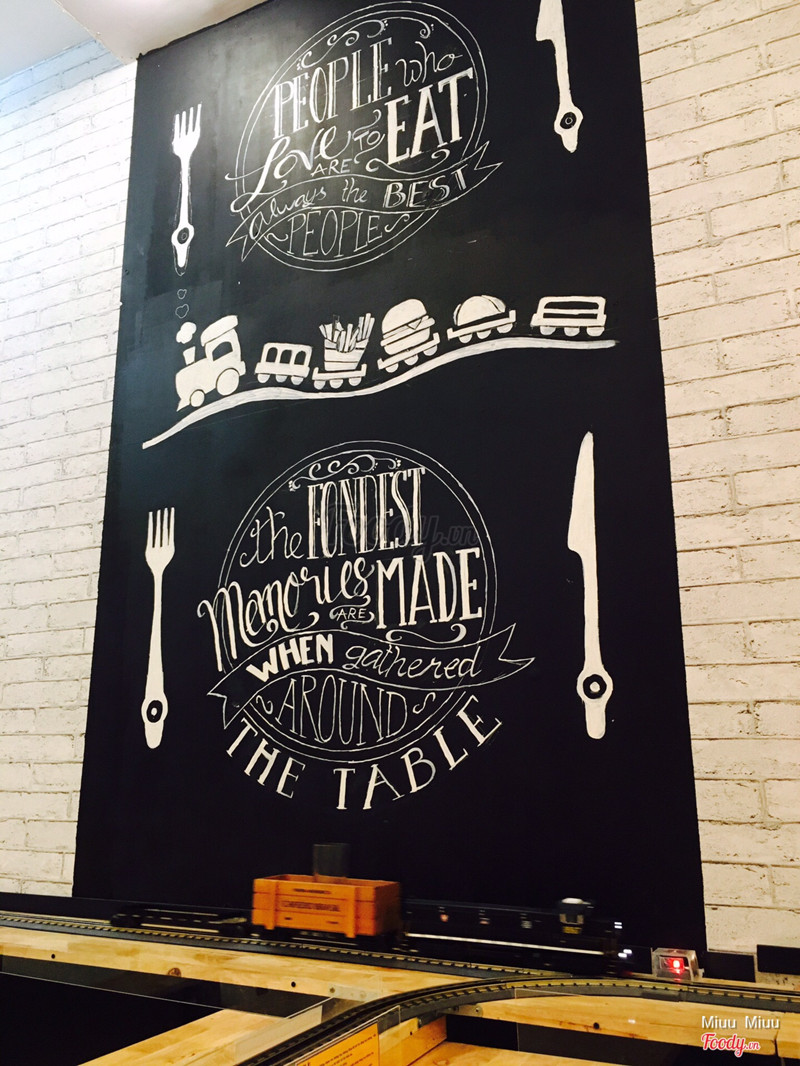 PEOPLE who
Love TO EAT
ARE
always the BEST
PEOPLE
the FONDEST
Memories ARE MADE
WHEN gathered
AROUND
THE TABLE
Foody.vn
Miuu Miuu
Foody.vn